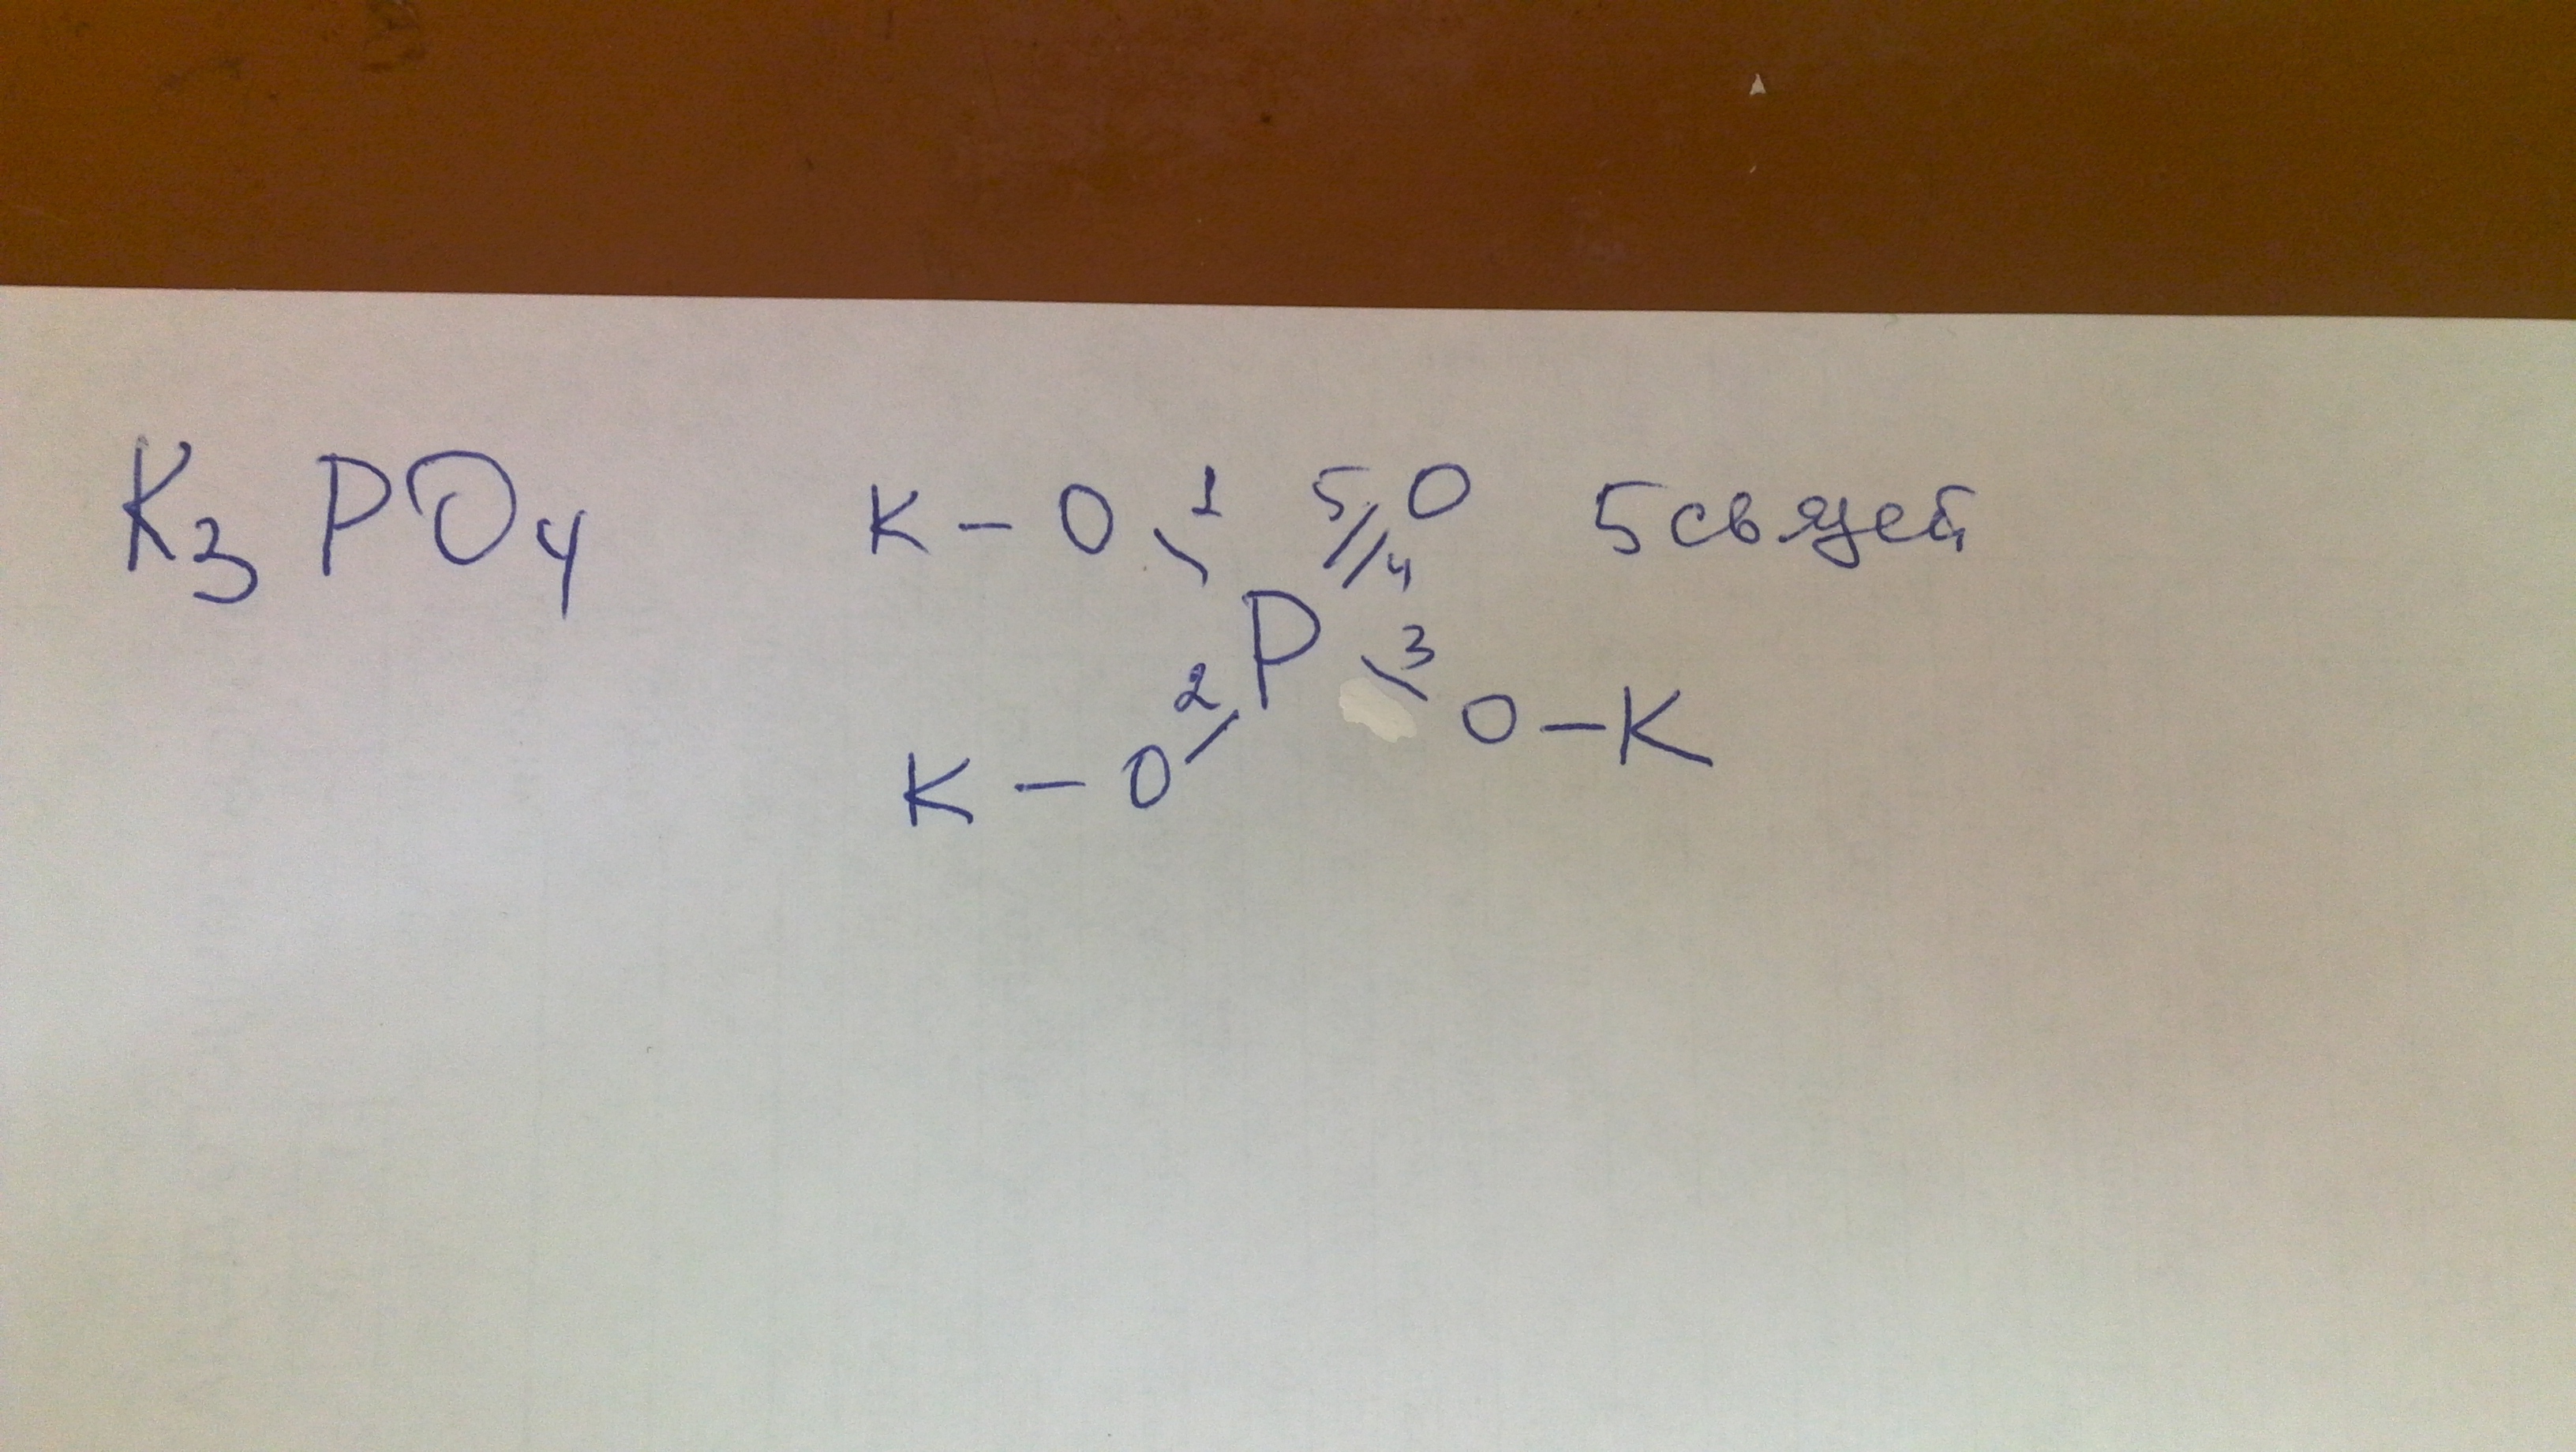 K3PO4 K-O 1 5//4 O 5 связей
P
2/ \3
K-O O-K